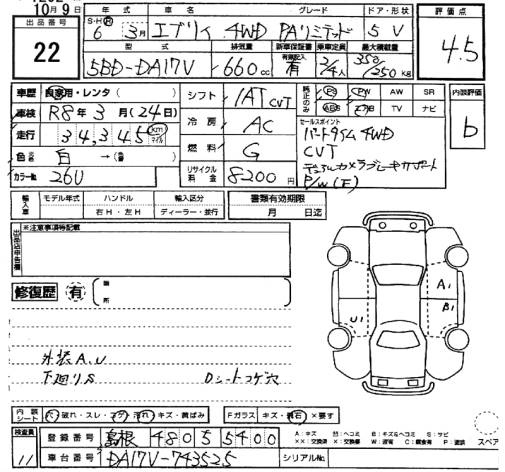 10月9日
出品番号
22
年式 車名 グレード ドア・形状
S・H・R 6年 3月 エブリイ 4WD PAリミテッド 5 V
型式 排気量 新車保証書 乗車定員 最大積載量
5BD-DA17V 660cc 有 2/4人 350/250kg
評価点
4.5
車歴 自家用・レンタ( )
車検 R8年3月(24日)
走行 34,345 km マイル
色 白→( )
カラーNo. 26U
シフト 1AT CVT
冷房 AC
燃料 G
リサイクル料金 8200円
純正のみ PS PW AW SR
ABS エアB TV ナビ
セールスポイント
パートタイム4WD
CVT
デュアルカメラブレーキサポート
P/W(F)
内装評価
b
輸入車 モデル年式 ハンドル 輸入区分 書類有効期限
年 右H・左H ディーラー・並行 月 日迄
※注意事項特記載
修復歴 有 箇所
A1
B1
U1
外装A.U
下廻りS Dシートコゲ穴
内装シート 穴 破れ・スレ・コゲ 汚れ キズ・黄ばみ
Fガラス キズ・飛石 ×要す
検査員
11
登録番号 島根 480 5 5400
車台番号 DA17V-743525
シリアルNo.
A:キズ B:キズ&ヘコミ S:サビ
スペア